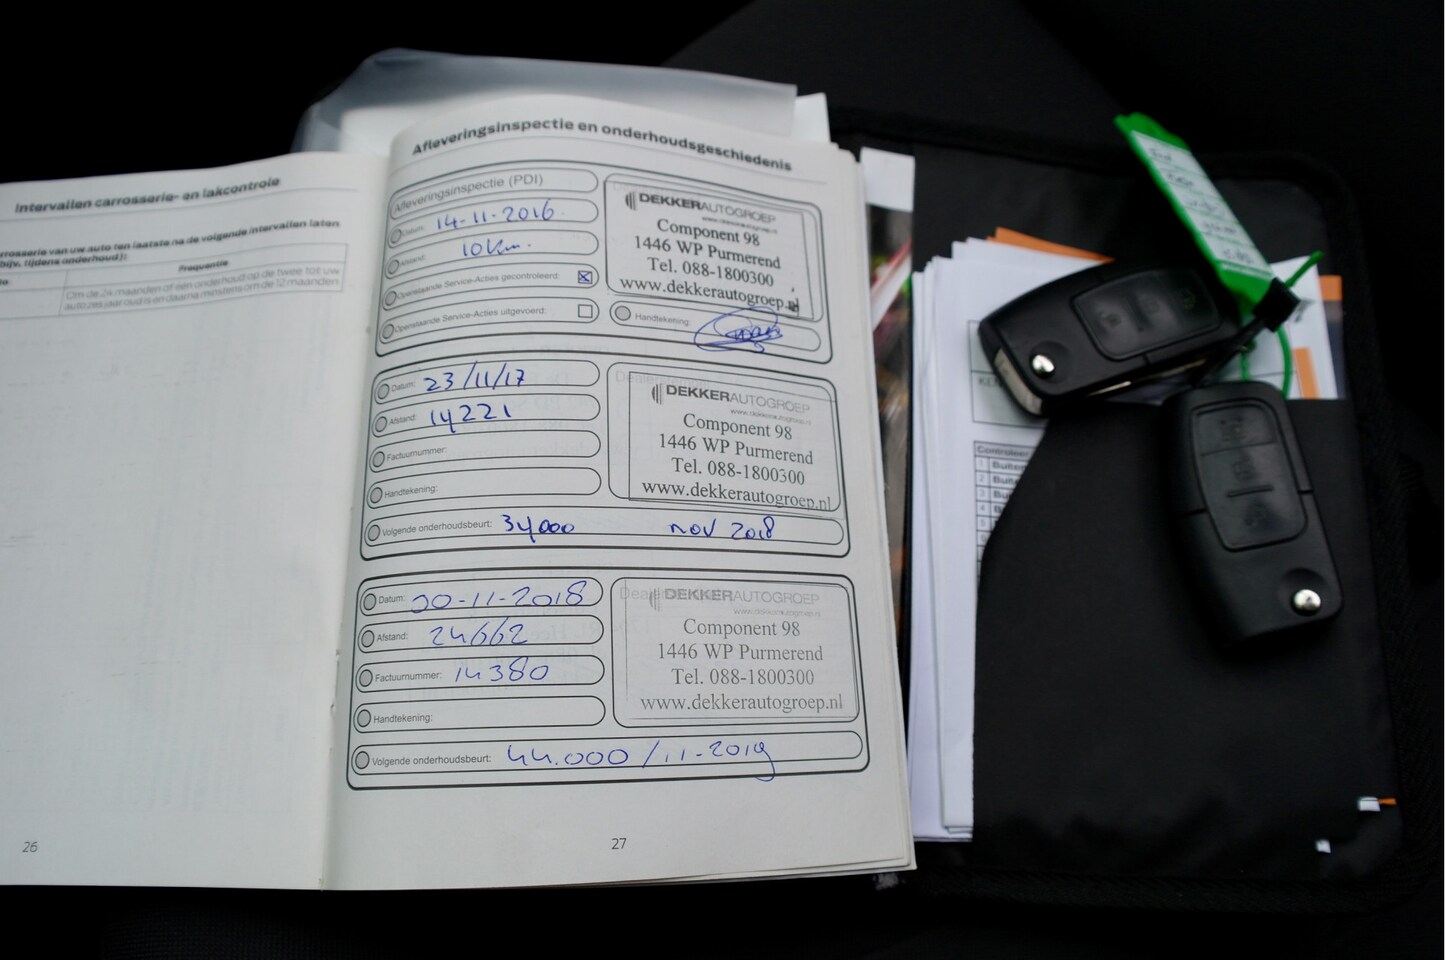 Intervallen carrosserie- en lakcontrole
rrosserie van uw auto ten laatste na de volgende intervallen laten
bijv. tijdens onderhoud):
Frequentie
Om de 24 maanden of één onderhoud op de twee tot uw
auto zes jaar oud is en daarna minstens om de 12 maanden
26
Afleveringsinspectie en onderhoudsgeschiedenis
Afleveringsinspectie (PDI)
Datum: 14-11-2016
Afstand: 10 km.
Openstaande Service-Acties gecontroleerd:
Openstaande Service-Acties uitgevoerd:
DEKKERAUTOGROEP
www.dekkerautogroep.nl
Component 98
1446 WP Purmerend
Tel. 088-1800300
www.dekkerautogroep.nl
Handtekening:
Datum: 23/11/17
Afstand: 14221
Factuurnummer:
Handtekening:
Volgende onderhoudsbeurt: 34000 nov 2018
DEKKERAUTOGROEP
www.dekkerautogroep.nl
Component 98
1446 WP Purmerend
Tel. 088-1800300
www.dekkerautogroep.nl
Datum: 20-11-2018
Afstand: 24662
Factuurnummer: 14380
Handtekening:
Volgende onderhoudsbeurt: 44.000 / 11-2019
DEKKERAUTOGROEP
www.dekkerautogroep.nl
Component 98
1446 WP Purmerend
Tel. 088-1800300
www.dekkerautogroep.nl
27
KE
Controleer
1 Buite
2 Buit
3 Bui
4 Bu